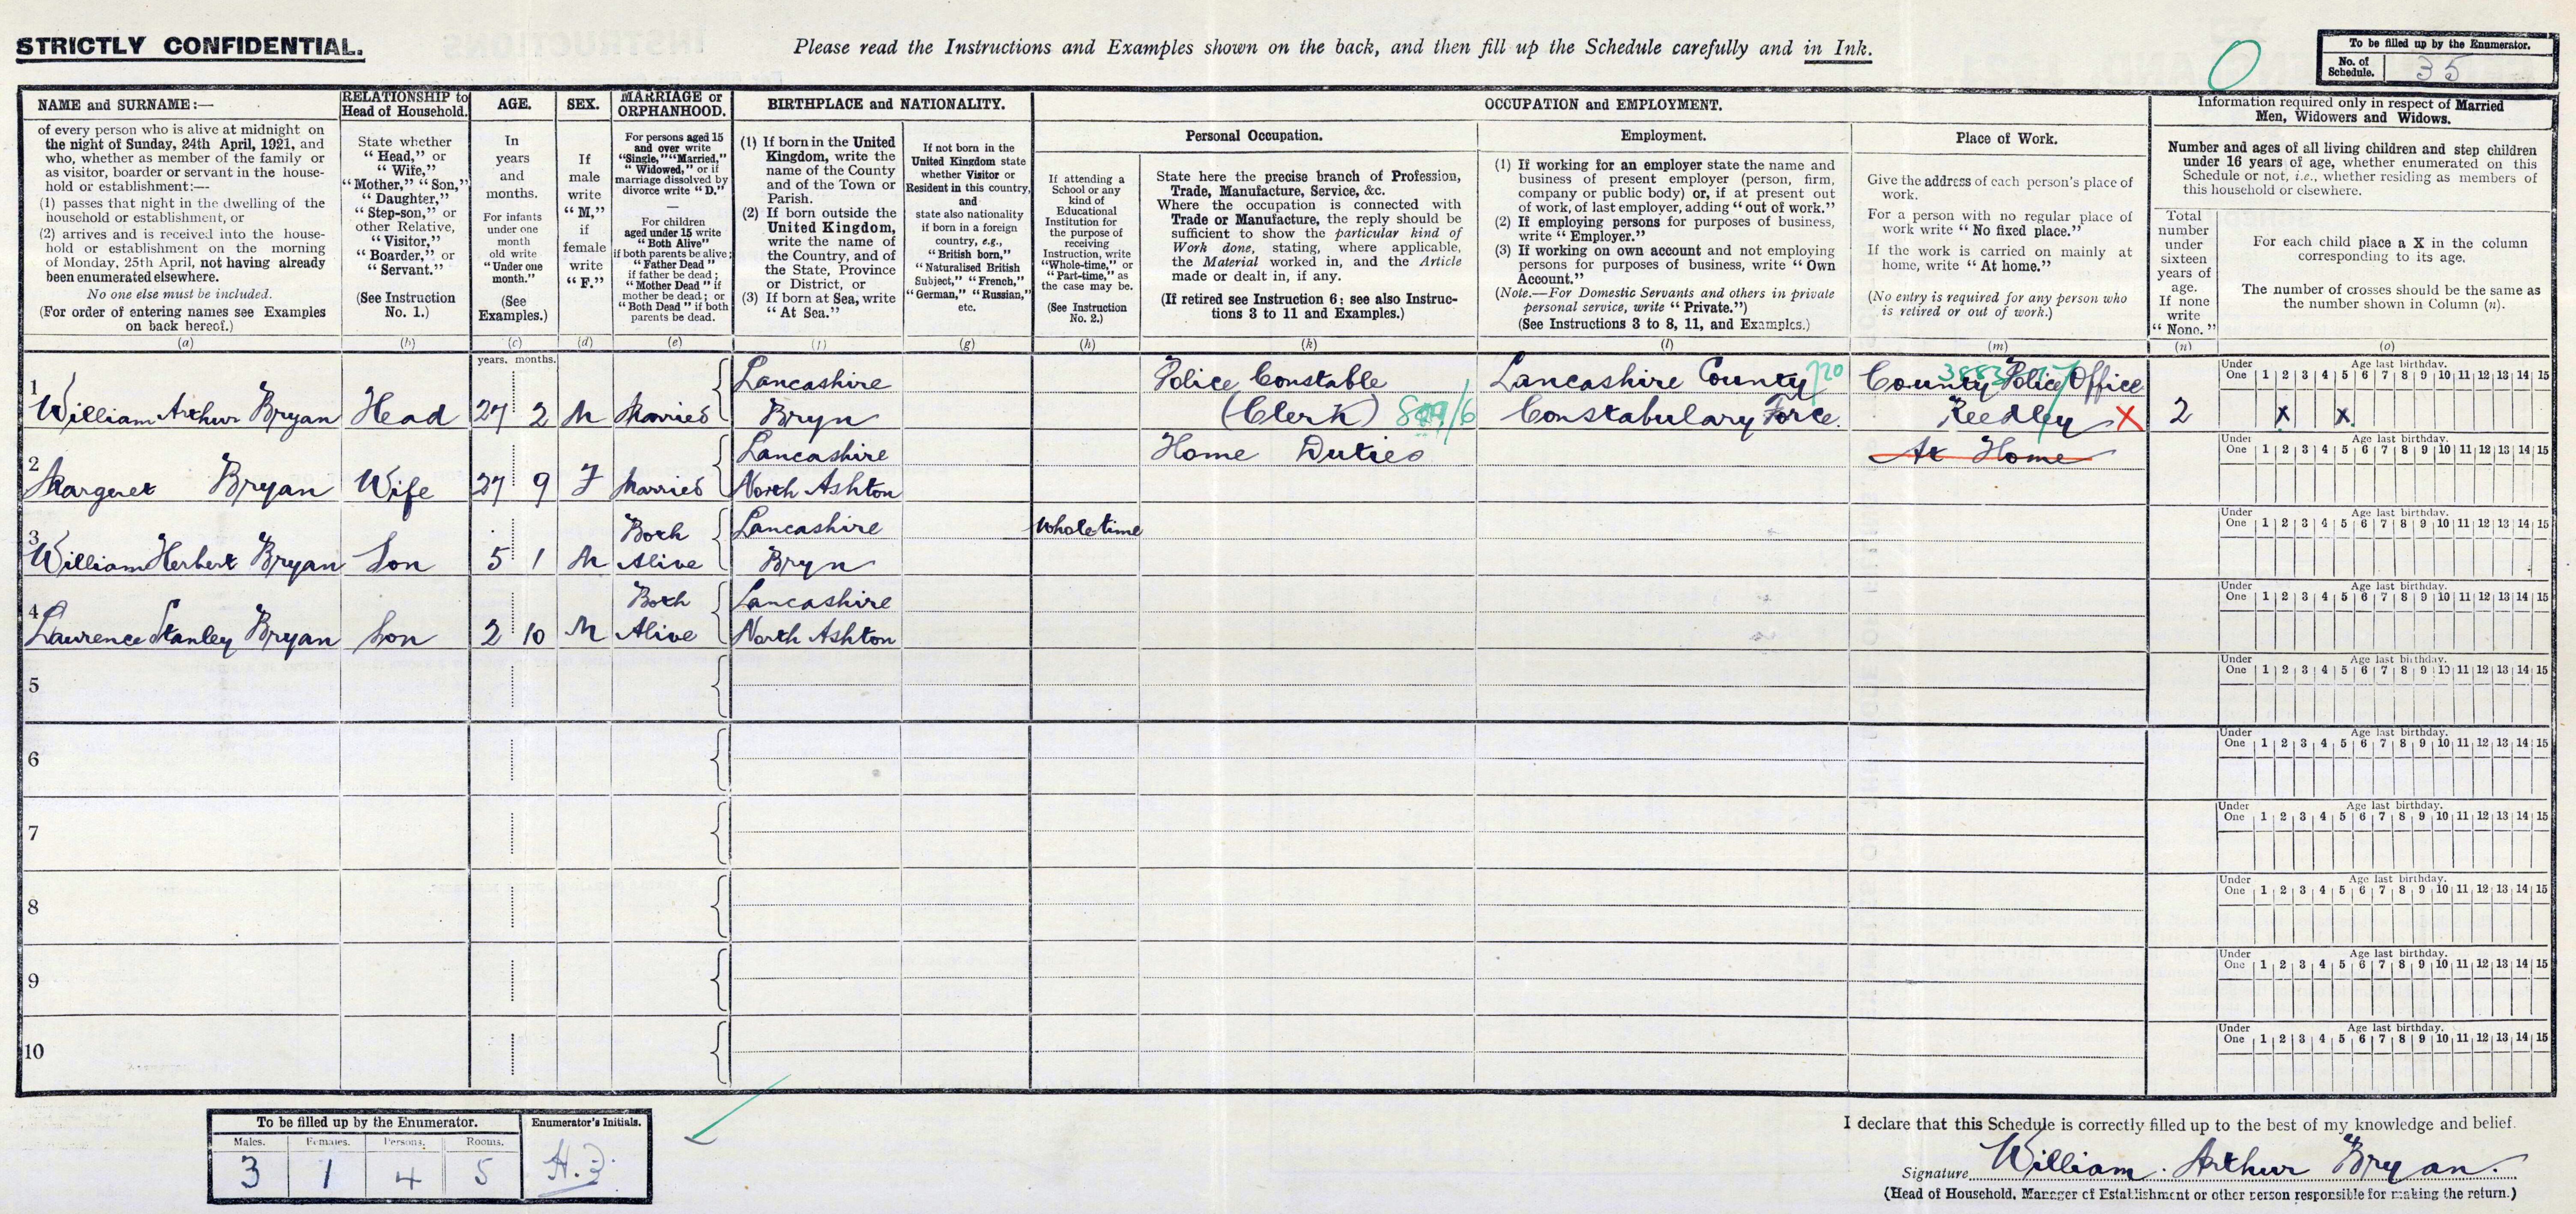 STRICTLY CONFIDENTIAL.
Please read the Instructions and Examples shown on the back, and then fill up the Schedule carefully and in Ink.
To be filled up by the Enumerator.
No. of Schedule. 35
NAME and SURNAME:—
of every person who is alive at midnight on
the night of Sunday, 24th April, 1921, and
who, whether as member of the family or
as visitor, boarder or servant in the house-
hold or establishment:—
(1) passes that night in the dwelling of the
household or establishment, or
(2) arrives and is received into the house-
hold or establishment on the morning
of Monday, 25th April, not having already
been enumerated elsewhere.
No one else must be included.
(For order of entering names see Examples
on back hereof.)
(a)
RELATIONSHIP to
Head of Household.
State whether
"Head," or
"Wife,"
"Mother," "Son,"
"Daughter,"
"Step-son," or
other Relative,
"Visitor,"
"Boarder," or
"Servant."
(See Instruction
No. 1.)
(b)
AGE.
In
years
and
months.
For infants
under one
month
old write
"Under one
month."
(See
Examples.)
(c)
SEX.
If
male
write
"M,"
if
female
write
"F."
(d)
MARRIAGE or
ORPHANHOOD.
For persons aged 15
and over write
"Single," "Married,"
"Widowed," or if
marriage dissolved by
divorce write "D."
—
For children
aged under 15 write
"Both Alive"
if both parents be alive;
"Father Dead"
if father be dead;
"Mother Dead" if
mother be dead; or
"Both Dead" if both
parents be dead.
(e)
BIRTHPLACE and NATIONALITY.
(1) If born in the United
Kingdom, write the
name of the County
and of the Town or
Parish.
(2) If born outside the
United Kingdom,
write the name of
the Country, and of
the State, Province
or District, or
(3) If born at Sea, write
"At Sea."
(f)
If not born in the
United Kingdom state
whether Visitor or
Resident in this country,
and
state also nationality
if born in a foreign
country, e.g.,
"British born,"
"Naturalised British
Subject," "French,"
"German," "Russian,"
etc.
(g)
OCCUPATION and EMPLOYMENT.
If attending a
School or any
kind of
Educational
Institution for
the purpose of
receiving
Instruction, write
"Whole-time," or
"Part-time," as
the case may be.
(See Instruction
No. 2.)
(h)
Personal Occupation.
State here the precise branch of Profession,
Trade, Manufacture, Service, &c.
Where the occupation is connected with
Trade or Manufacture, the reply should be
sufficient to show the particular kind of
Work done, stating, where applicable,
the Material worked in, and the Article
made or dealt in, if any.
(If retired see Instruction 6; see also Instruc-
tions 3 to 11 and Examples.)
(k)
Employment.
(1) If working for an employer state the name and
business of present employer (person, firm,
company or public body) or, if at present out
of work, of last employer, adding "out of work."
(2) If employing persons for purposes of business,
write "Employer."
(3) If working on own account and not employing
persons for purposes of business, write "Own
Account."
(Note.—For Domestic Servants and others in private
personal service, write "Private.")
(See Instructions 3 to 8, 11, and Examples.)
(l)
Place of Work.
Give the address of each person's place of
work.
For a person with no regular place of
work write "No fixed place."
If the work is carried on mainly at
home, write "At home."
(No entry is required for any person who
is retired or out of work.)
(m)
Information required only in respect of Married
Men, Widowers and Widows.
Number and ages of all living children and step children
under 16 years of age, whether enumerated on this
Schedule or not, i.e., whether residing as members of
this household or elsewhere.
Total
number
under
sixteen
years of
age.
If none
write
"None."
(n)
For each child place a X in the column
corresponding to its age.
The number of crosses should be the same as
the number shown in Column (n).
(o)
years. months.
Under One Age last birthday. 1 2 3 4 5 6 7 8 9 10 11 12 13 14 15
1 William Arthur Bryan Head 27 2 M Married Lancashire Bryn
Police Constable (Clerk)
Lancashire County Constabulary Force. 720
County Police Office Reedley X
2 x x
Under One Age last birthday. 1 2 3 4 5 6 7 8 9 10 11 12 13 14 15
2 Margaret Bryan Wife 27 9 F Married Lancashire North Ashton Home Duties At Home
Under One Age last birthday. 1 2 3 4 5 6 7 8 9 10 11 12 13 14 15
3 William Herbert Bryan Son 5 1 M Both Alive Lancashire Bryn Whole time
Under One Age last birthday. 1 2 3 4 5 6 7 8 9 10 11 12 13 14 15
4 Lawrence Stanley Bryan Son 2 10 M Both Alive Lancashire North Ashton
Under One Age last birthday. 1 2 3 4 5 6 7 8 9 10 11 12 13 14 15
5
Under One Age last birthday. 1 2 3 4 5 6 7 8 9 10 11 12 13 14 15
6
Under One Age last birthday. 1 2 3 4 5 6 7 8 9 10 11 12 13 14 15
7
Under One Age last birthday. 1 2 3 4 5 6 7 8 9 10 11 12 13 14 15
8
Under One Age last birthday. 1 2 3 4 5 6 7 8 9 10 11 12 13 14 15
9
Under One Age last birthday. 1 2 3 4 5 6 7 8 9 10 11 12 13 14 15
10
Under One Age last birthday. 1 2 3 4 5 6 7 8 9 10 11 12 13 14 15
To be filled up by the Enumerator.
Males. Females. Persons. Rooms.
3 1 4 5
Enumerator's Initials.
I declare that this Schedule is correctly filled up to the best of my knowledge and belief.
Signature William Arthur Bryan.
(Head of Household, Manager of Establishment or other person responsible for making the return.)